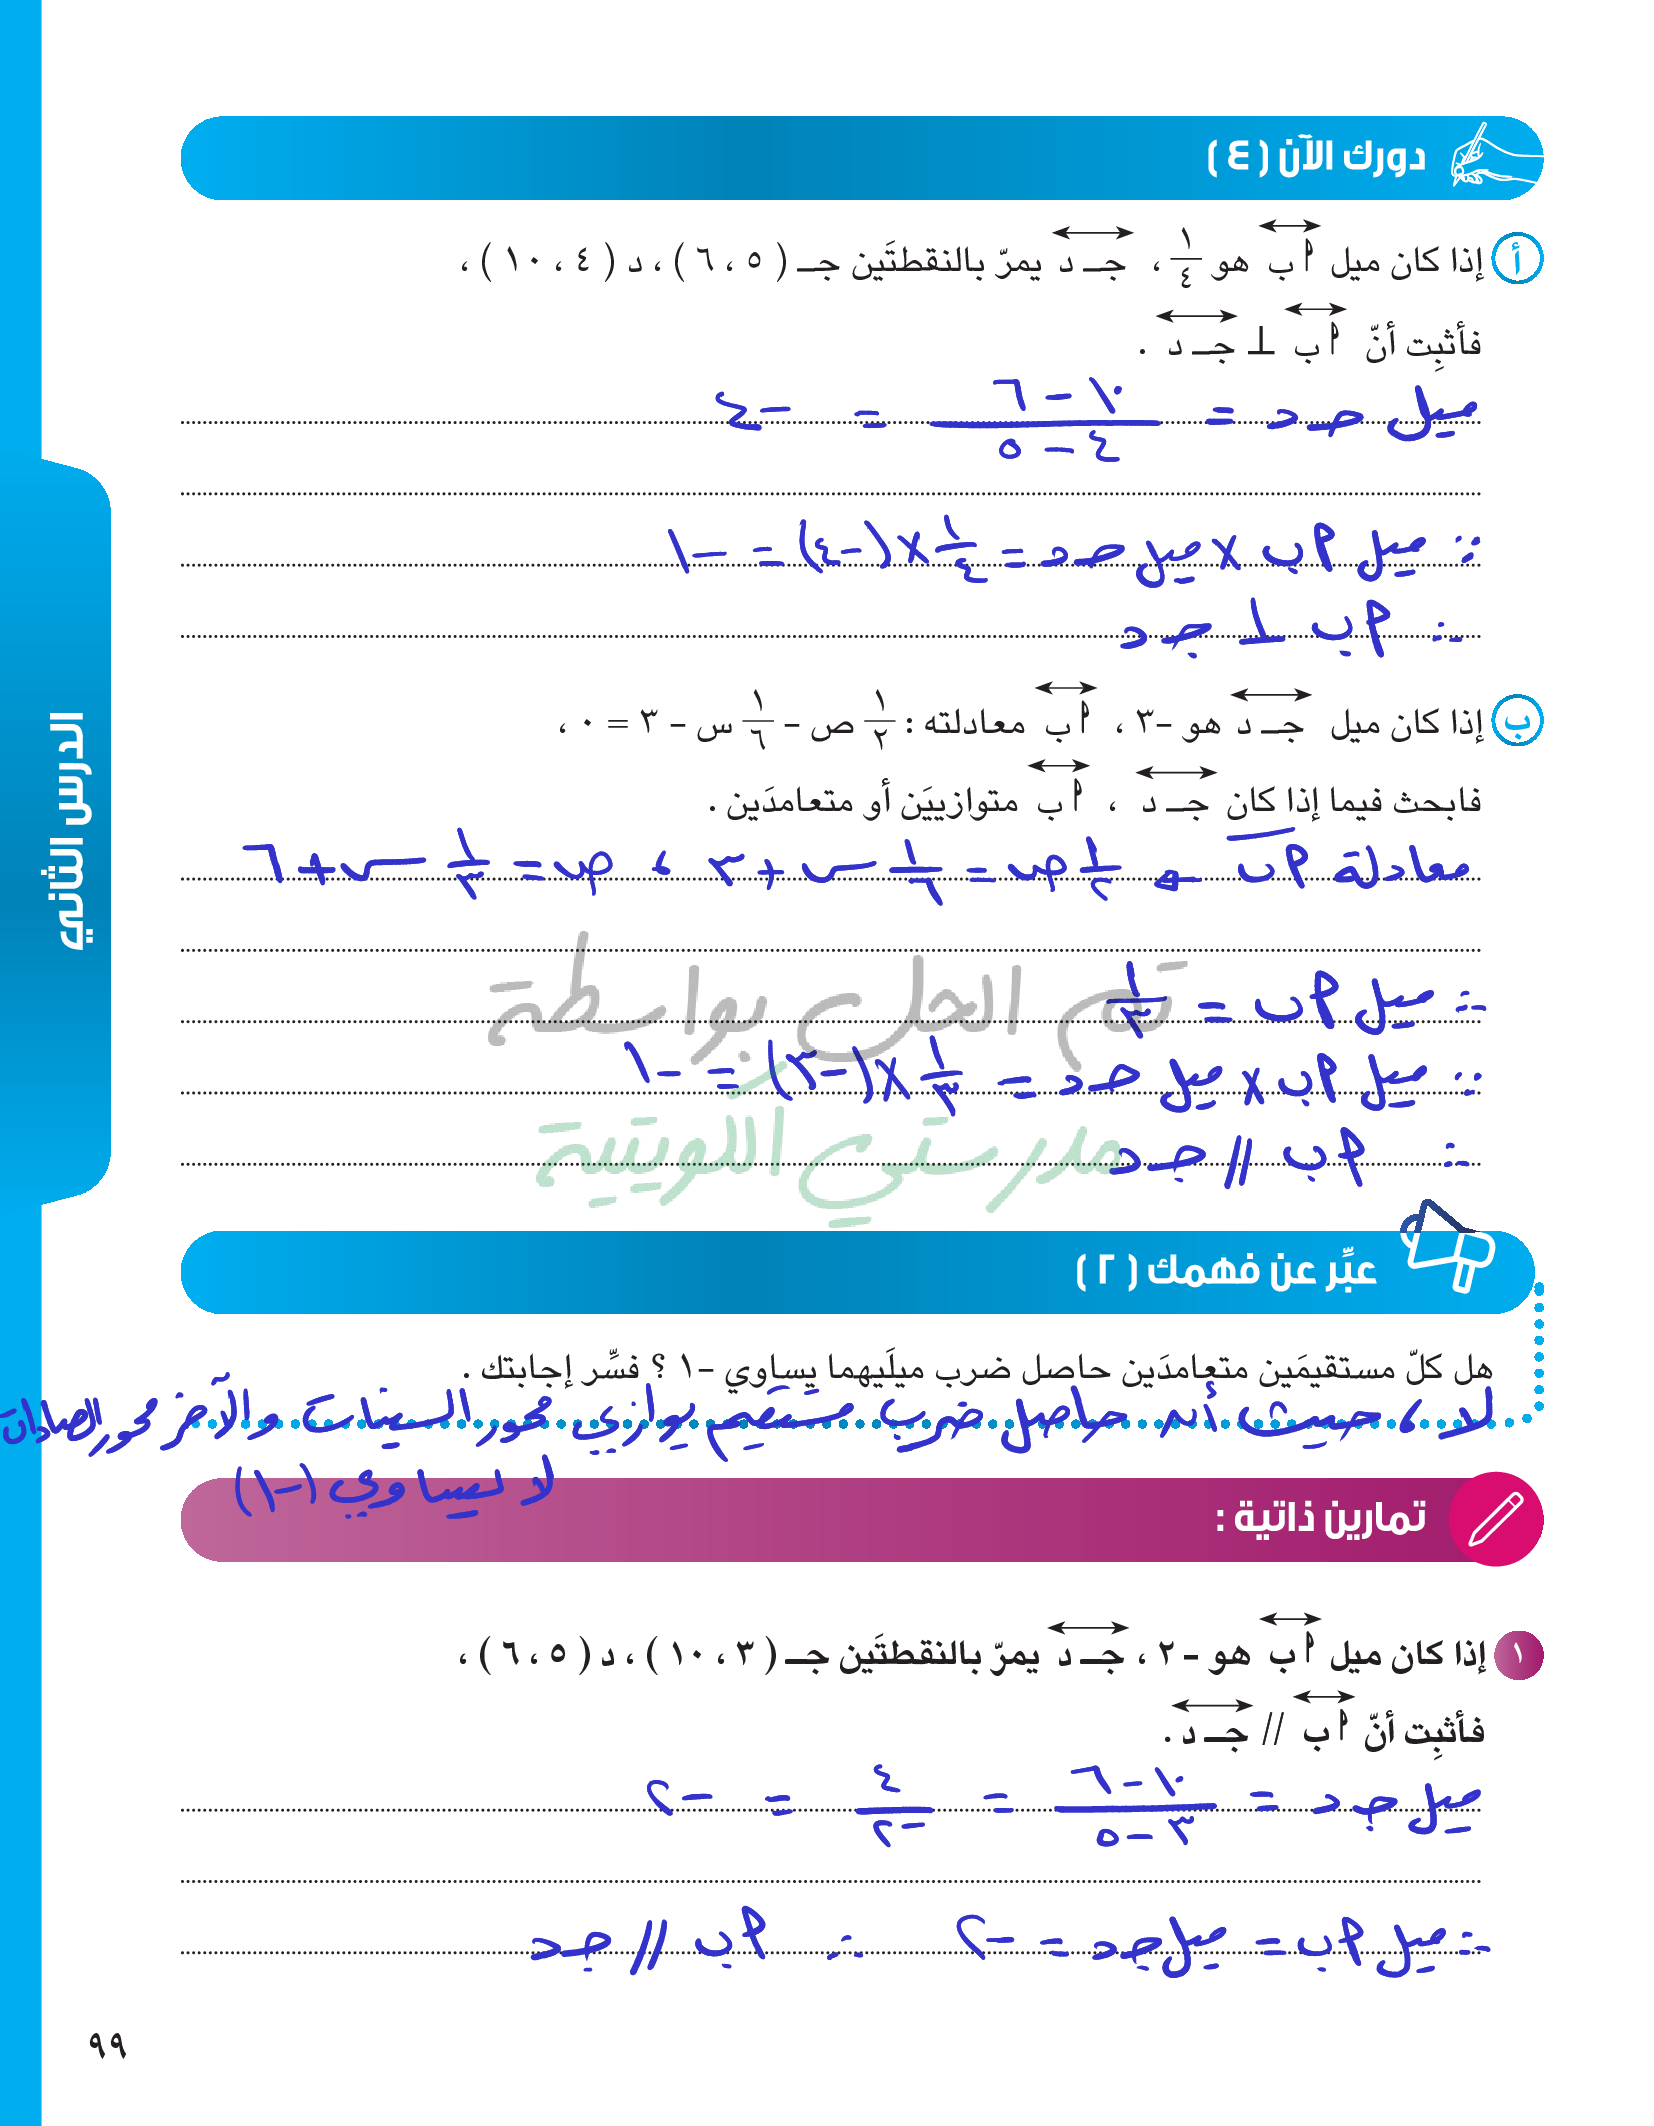 دورك الآن ( ٤ )
أ إذا كان ميل أب هو ١/٤ ، جـ د يمرّ بالنقطتَين جـ ( ٥ ، ٦ ) ، د ( ٤ ، ١٠ ) ،
فأثبِت أنّ أب ⊥ جـ د .
ميل جـ د = (١٠ − ٦)/(٤ − ٥) = −٤
∵ ميل أب × ميل جـ د = ١/٤ × (−٤) = −١
∴ أب ⊥ جـ د
ب إذا كان ميل جـ د هو -٣ ، أب معادلته : ١/٢ ص - ١/٦ س - ٣ = ٠ ،
فابحث فيما إذا كان جـ د ، أب متوازييَن أو متعامدَين .
معادلة أب ← ١/٢ ص = ١/٦ س + ٣ ، ص = ١/٣ س + ٦
∴ ميل أب = ١/٣
تم الحل بواسطة
∵ ميل أب × ميل جـ د = ١/٣ × (−٣) = −١
مدرستي الكويتية
∴ أب // جـ د
الدرس الثاني
عبِّر عن فهمك ( ٢ )
هل كلّ مستقيمَين متعامدَين حاصل ضرب ميلَيهما يساوي -١ ؟ فسِّر إجابتك .
لا ، حيث أنه حاصل ضرب مستقيم يوازي محور السينات والآخر محور الصادات
لا يساوي (−١)
تمارين ذاتية :
١ إذا كان ميل أب هو -٢ ، جـ د يمرّ بالنقطتَين جـ ( ٣ ، ١٠ ) ، د ( ٥ ، ٦ ) ،
فأثبِت أنّ أب // جـ د .
ميل جـ د = (١٠ − ٦)/(٣ − ٥) = ٤/−٢ = −٢
∴ ميل أب = ميل جـ د = −٢ ∴ أب // جـ د
٩٩